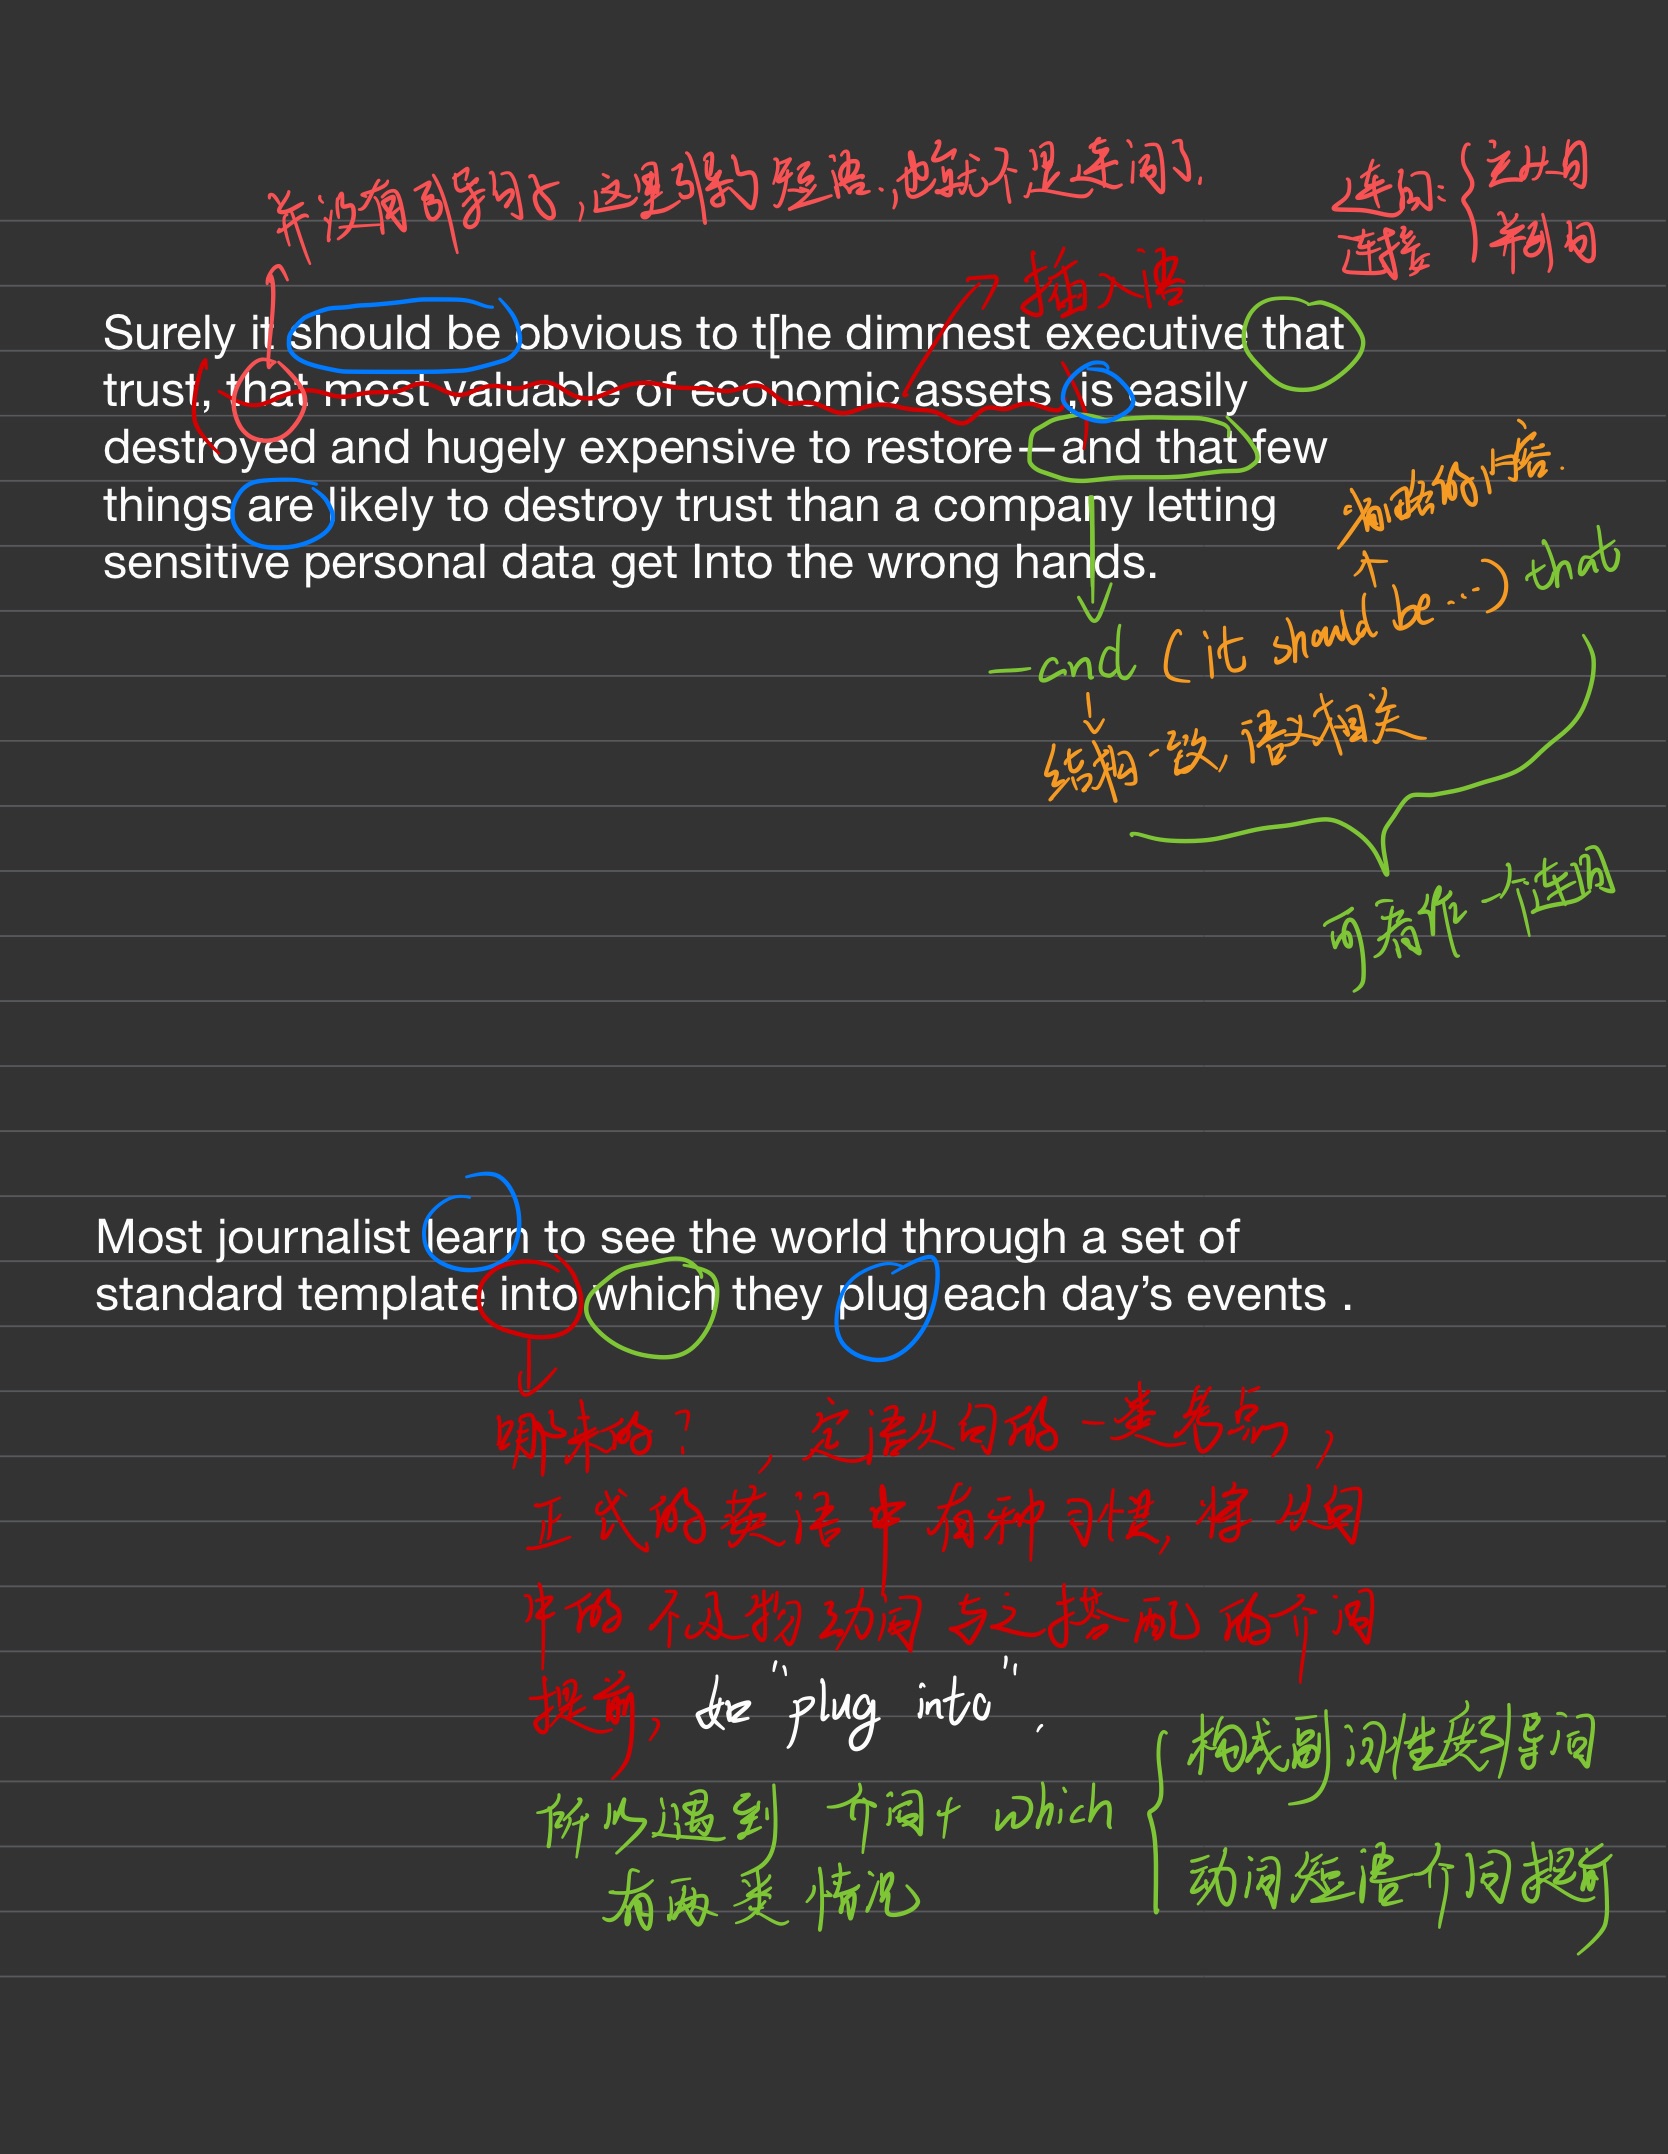 并没有引导句子,这里引导短语.也就不是连词了.
连词: 主从句
连接 并列句
插入语
Surely it should be obvious to t[he dimmest executive that
trust, that most valuable of economic assets ,is easily
destroyed and hugely expensive to restore—and that few
things are likely to destroy trust than a company letting
sensitive personal data get Into the wrong hands.
省略的内容.
—and (it should be ...) that
结构一致,语义相关
可看作一个连词
Most journalist learn to see the world through a set of
standard template into which they plug each day’s events .
哪来的? ,定语从句的一类考点,
正式的英语中有种习惯,将从句
中的不及物动词与之搭配的介词
提前, 如"plug into".
构成副词性质引导词
所以遇到 介词+ which
有两类情况
动词短语介词提前